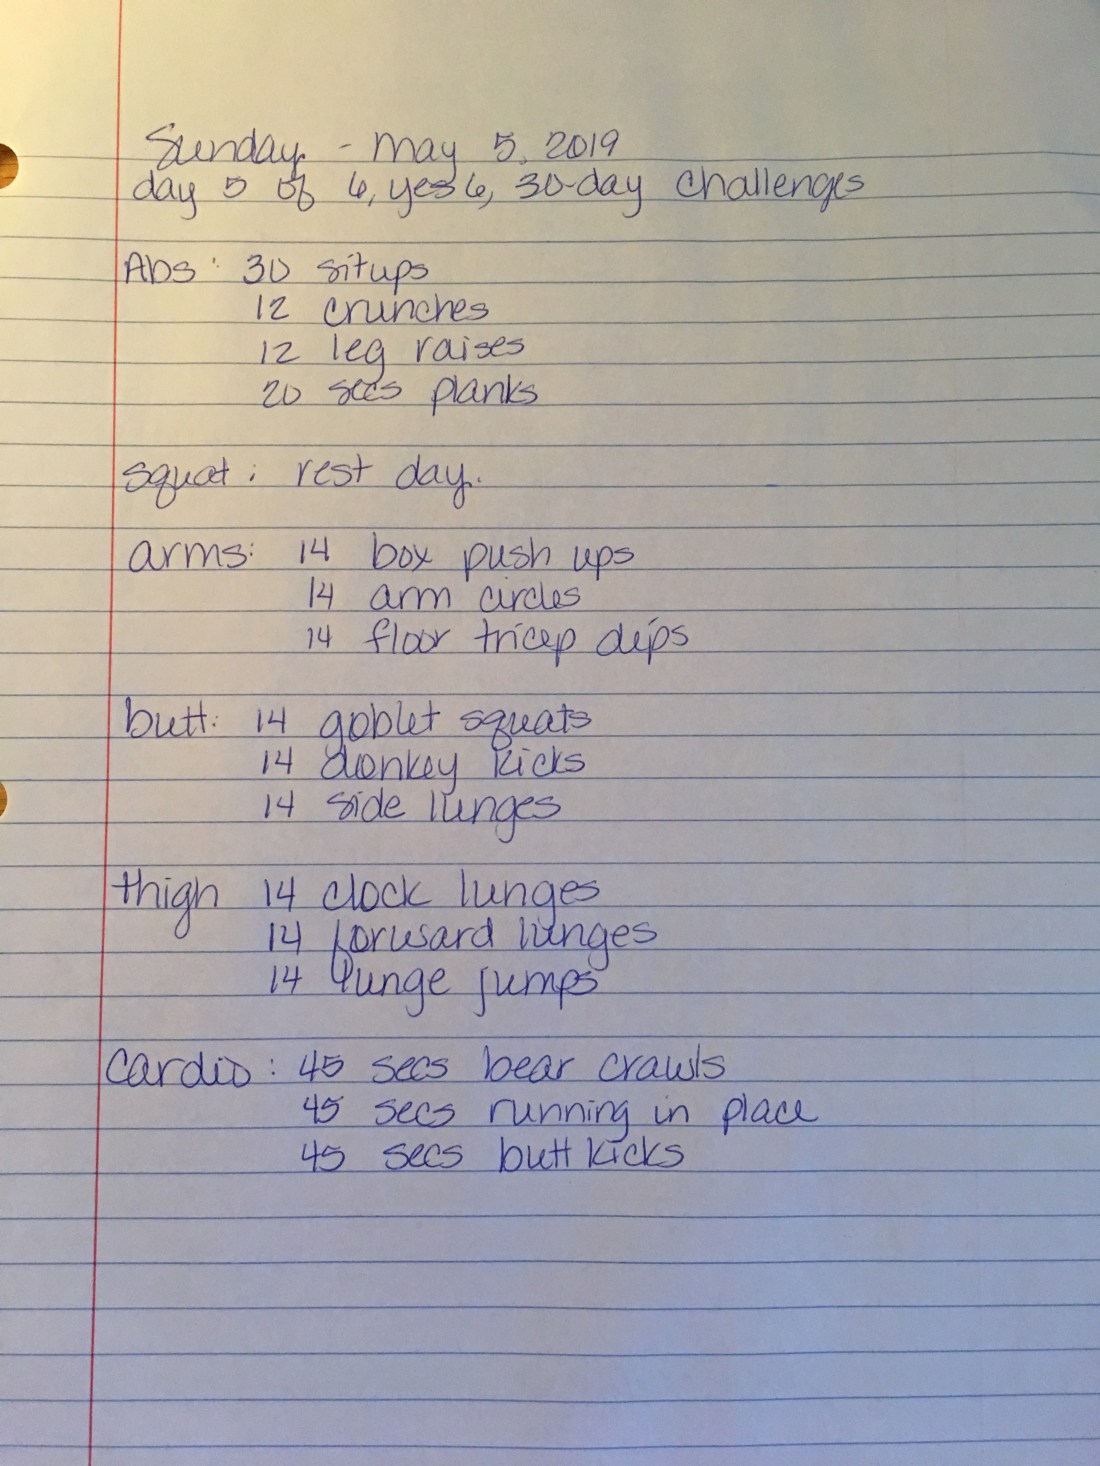 Sunday - May 5, 2019
day 5 of 6, yes 6, 30-day challenges
Abs: 30 situps
12 crunches
12 leg raises
20 secs planks
squat: rest day.
arms: 14 box push ups
14 arm circles
14 floor tricep dips
butt: 14 goblet squats
14 donkey kicks
14 side lunges
thigh 14 clock lunges
14 forward lunges
14 lunge jumps
Cardio: 45 secs bear crawls
45 secs running in place
45 secs butt kicks